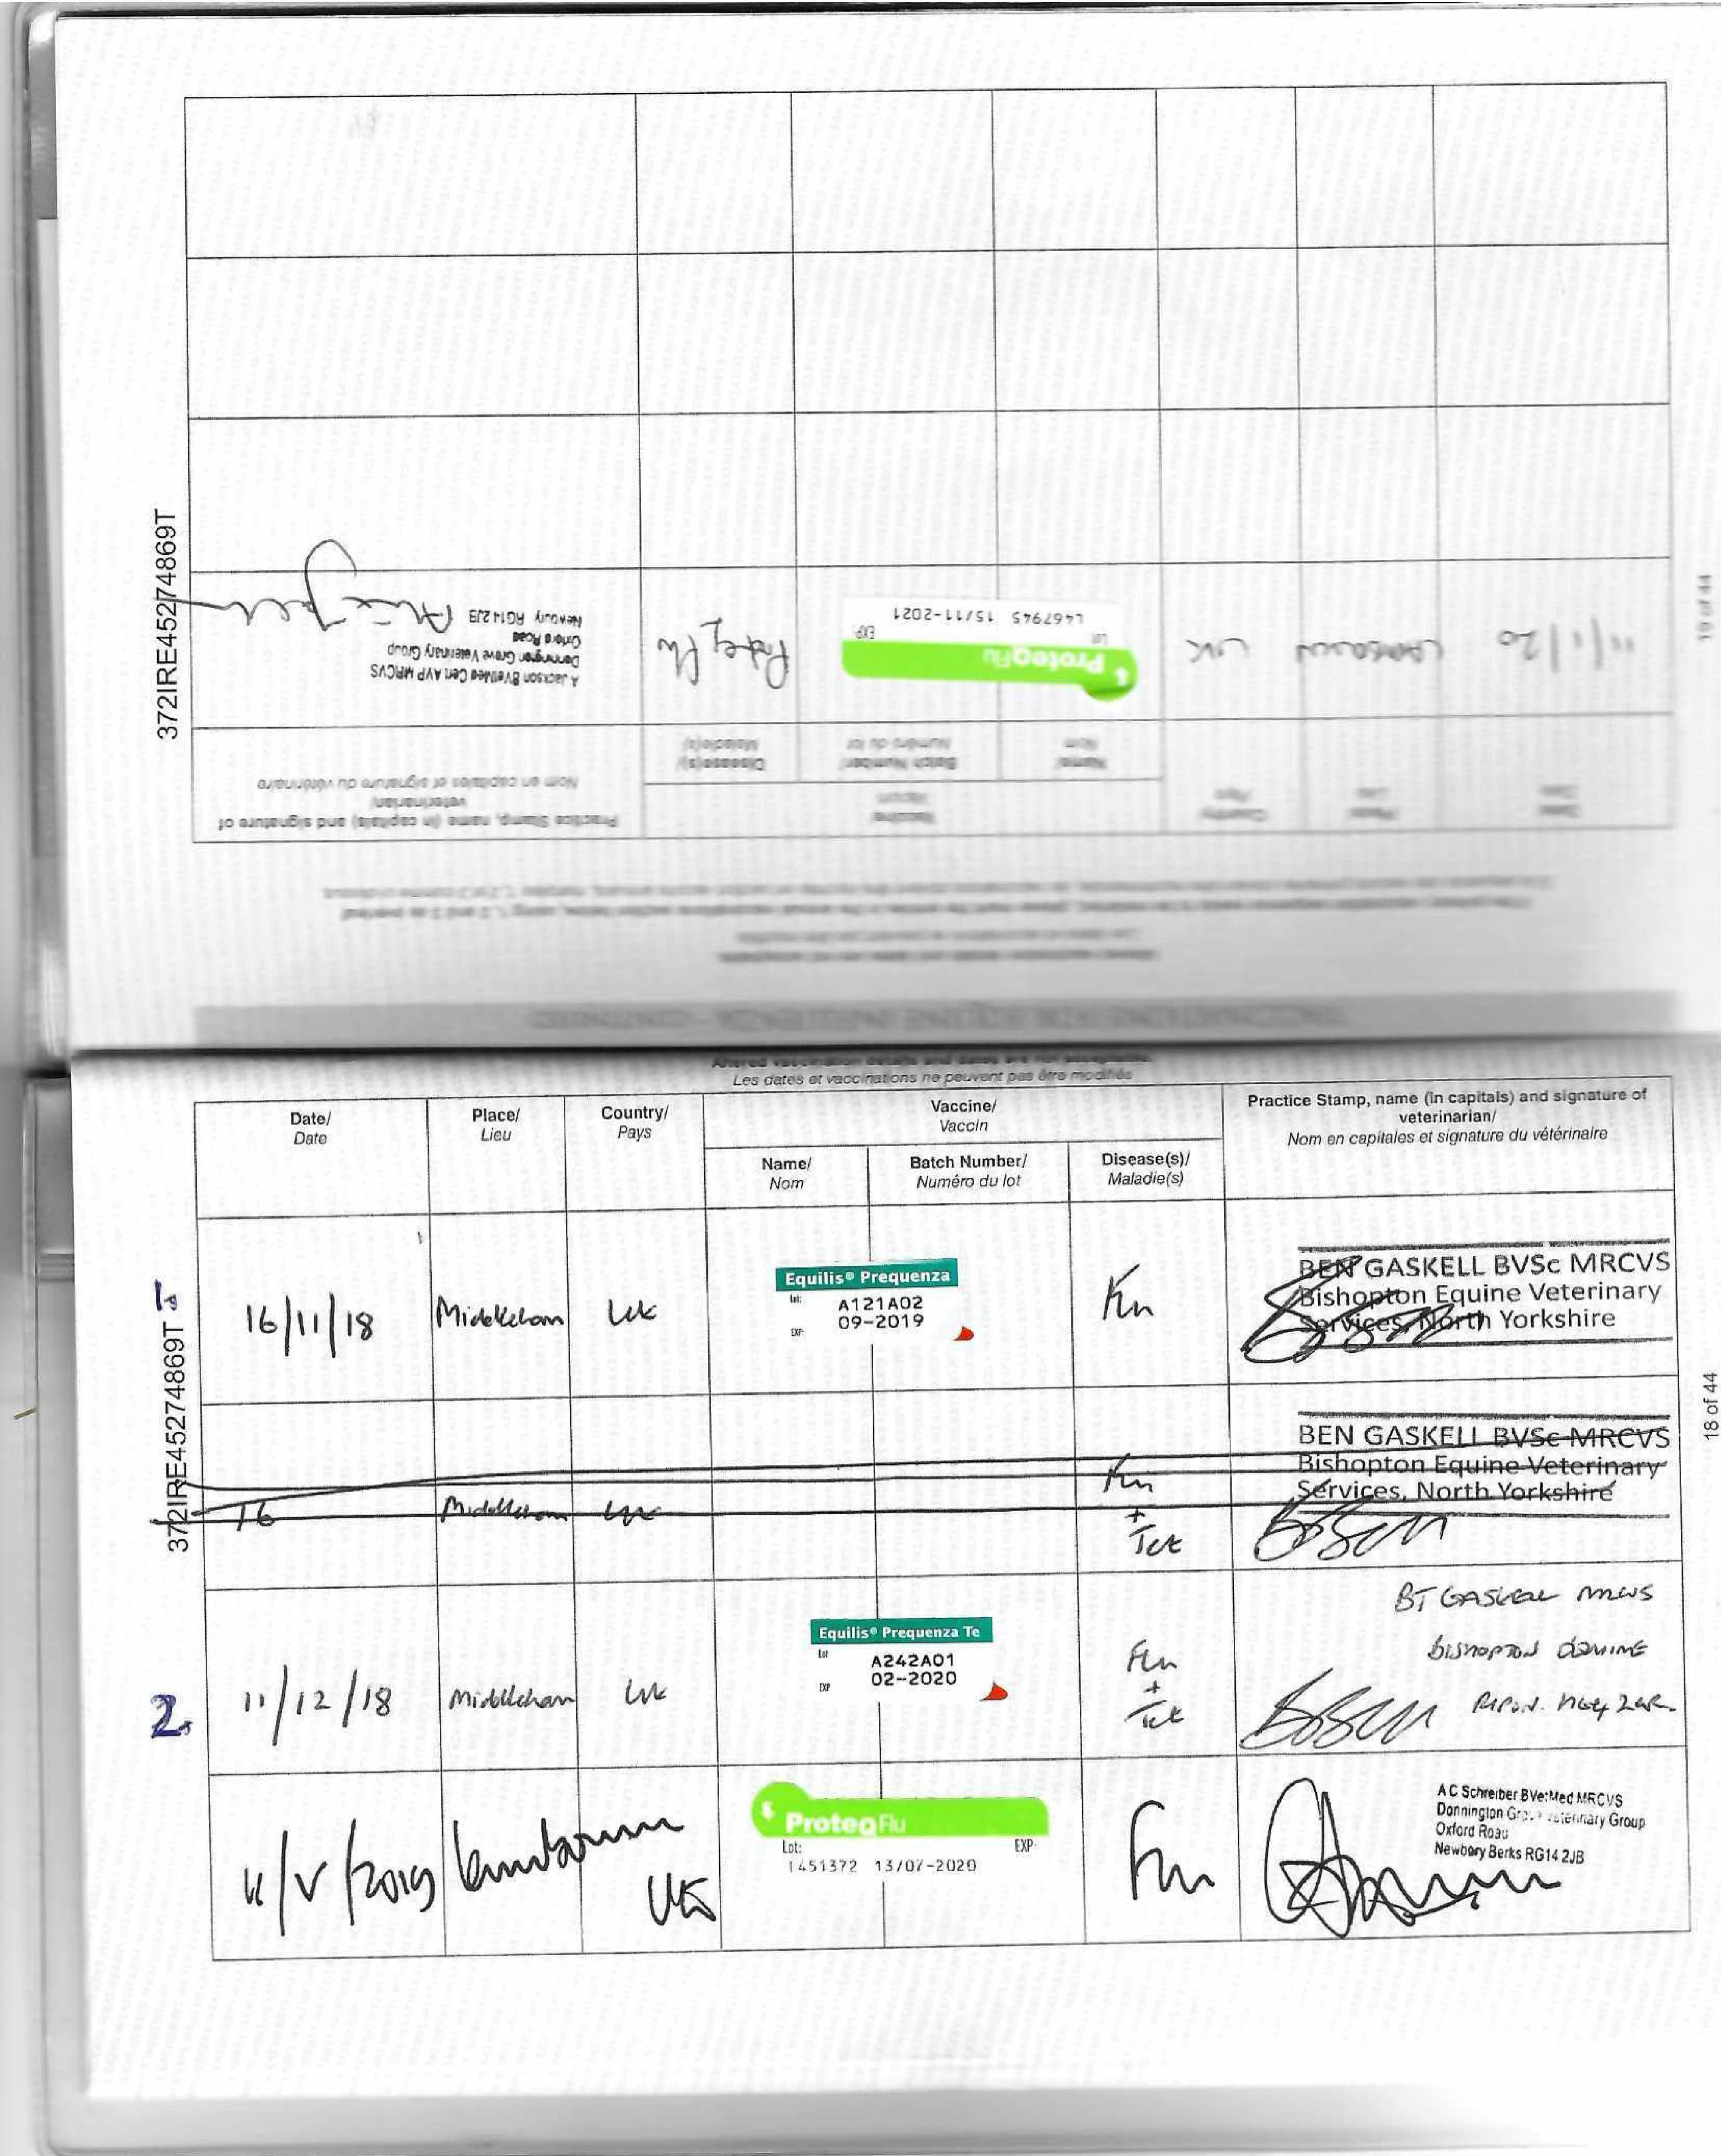 372IRE45274869T
19 of 44
VACCINATIONS FOR EQUINE INFLUENZA - CONTINUED
Altered vaccination details and dates are not acceptable.
Les dates et vaccinations ne peuvent pas être modifiés
Date/
Date
Place/
Lieu
Country/
Pays
Vaccine/
Vaccin
Name/
Nom
Batch Number/
Numéro du lot
Disease(s)/
Maladie(s)
Practice Stamp, name (in capitals) and signature of
veterinarian/
Nom en capitales et signature du vétérinaire
11/1/20
LAMBOURN
UK
ProteqFlu
Lot
EXP
L467945 15/11-2021
Proteq Flu
A Jackson BVetMed Cert AVP MRCVS
Donnington Grove Veterinary Group
Oxford Road
Newbury RG14 2JB
Altered vaccination details and dates are not acceptable.
Les dates et vaccinations ne peuvent pas être modifiés
Date/
Date
Place/
Lieu
Country/
Pays
Vaccine/
Vaccin
Name/
Nom
Batch Number/
Numéro du lot
Disease(s)/
Maladie(s)
Practice Stamp, name (in capitals) and signature of
veterinarian/
Nom en capitales et signature du vétérinaire
372IRE45274869T
18 of 44
1.
16/11/18
Middleham
UK
Equilis® Prequenza
Lot:
A121A02
EXP:
09-2019
Flu
BEN GASKELL BVSc MRCVS
Bishopton Equine Veterinary
Services, North Yorkshire
16
Middleham
UK
Flu
+
Tet
BEN GASKELL BVSc MRCVS
Bishopton Equine Veterinary
Services, North Yorkshire
2.
11/12/18
Middleham
UK
Equilis® Prequenza Te
Lot
A242A01
EXP
02-2020
Flu
+
Tet
BT GASKELL MRCVS
BISHOPTON
RIPON.
/V/2019
Lambourn
UK
ProteqFlu
Lot:
EXP:
L451372 13/07-2020
Flu
A C Schreiber BVetMed MRCVS
Donnington Grove Veterinary Group
Oxford Road
Newbury Berks RG14 2JB